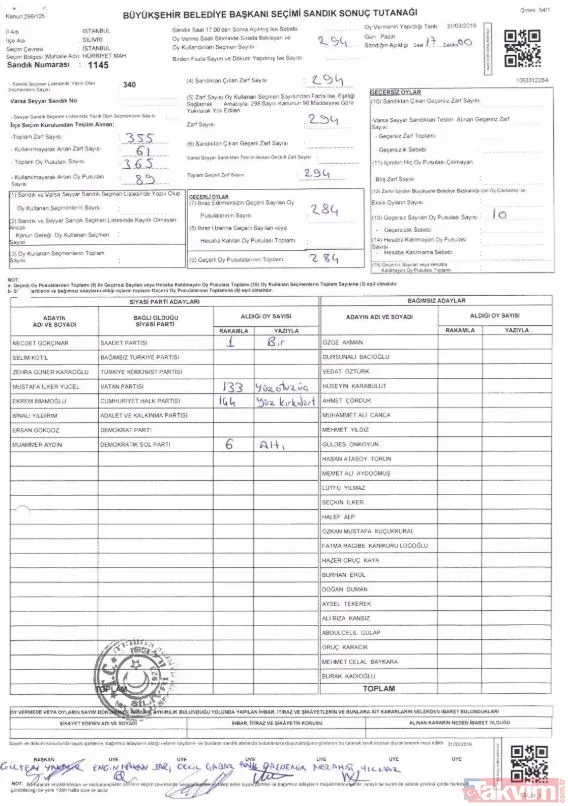 Kanun 298/105
Örnek: 54/1
BÜYÜKŞEHİR BELEDİYE BAŞKANI SEÇİMİ SANDIK SONUÇ TUTANAĞI
İl Adı İSTANBUL
İlçe Adı SİLİVRİ
Seçim Çevresi İSTANBUL
Seçim Bölges (Mahalle Adı) HÜRRİYET MAH
Sandık Numarası : 1145
Sandık Saat 17.00'den Sonra Açılmış İse Sebebi
Oy Verme Saati Bitiminde Sırada Bekleyen ve
Oy Kullandırılan Seçmen Sayısı 294
Birden Fazla Sayım ve Döküm Yapılmış İse Sayısı
Oy Vermenin Yapıldığı Tarih 31/03/2019
Gün Pazar
Sandığın Açıldığı Saat 17 Dakika 00
1063312284
- Sandık Seçmen Listesinde Yazılı Olan
Seçmen Sayısı 340
Varsa Seyyar Sandık No
- Seyyar Sandık Seçmen Listesinde Yazılı Olan Seçmenlerin Sayısı
İlçe Seçim Kurulundan Teslim Alınan;
-Toplam Zarf Sayısı 355
- Kullanılmayarak Artan Zarf Sayısı 61
-Toplam Oy Pusulası Sayısı 365
- Kullanılmayarak Artan Oy Pusulası Sayısı 89
(1) Sandık ve Varsa Seyyar Sandık Listesinde Yazılı Olup
Oy Kullanan Seçmenlerin Sayısı
(2) Sandık ve Seyyar Sandık Seçmen Listesinde Kayıtlı Olmayan Ancak
Kanun Gereği Oy Kullanan Seçmen
Sayısı
(3) Oy Kullanan Seçmenlerin Toplamı
Sayısı
(4) Sandıktan Çıkan Zarf Sayısı 294
(5) Zarf Sayısı Oy Kullanan Seçmen Sayısından Fazla İse, Eşitliği
Sağlamak Amacıyla, 298 Sayılı Kanunun 98.Maddesine Göre
Yakılarak Yok Edilen
Zarf Sayısı 294
(6) Sandıktan Çıkan Geçerli Zarf Sayısı
Varsa Seyyar Sandıktan Teslim Alınan Geçerli Zarf Sayısı
Toplam Geçerli Zarf Sayısı 294
GEÇERLİ OYLAR
(7) İtiraz Edilmeksizin Geçerli Sayılan Oy
Pusulalarının Sayısı 284
(8) İtiraz Üzerine Geçerli Sayılan veya
Hesaba Katılan Oy Pusulası Toplamı
(9) Geçerli Oy Pusulalarının Toplamı 284
GEÇERSİZ OYLAR
(10) Sandıktan Çıkan Geçersiz Zarf Sayısı
-Varsa Seyyar Sandıktan Teslim Alınan Geçersiz Zarf
Sayısı
- Geçersiz Zarf Toplamı
- Geçersizlik Sebebi
(11) İçinden Hiç Oy Pusulası Çıkmayan
Boş Zarf Sayısı
(12) Zarfın İçinden Büyükşehir Belediye Başkanlığı İçin Oy Çıkmaması ve
Eksik Oyların Sayısı
(13) Geçersiz Sayılan Oy Pusulası Sayısı 10
- Geçersizlik Sebebi
(14) Hesaba Katılmayan Oy Pusulası Sayısı
- Hesaba Katılmama Sebebi
(15) Geçersiz Sayılan veya Hesaba
Katılmayan Oy Pusulası Toplamı
NOT:
a- Geçerli Oy Pusulalarının Toplamı (9) ile Geçersiz Sayılan veya Hesaba Katılmayan Oy Pusulası Toplamı (15) Oy Kullanan Seçmenlerin Toplamına (3) eşit olmalıdır.
SİYASİ PARTİ ADAYLARI BAĞIMSIZ ADAYLAR
ADAYIN ADI VE SOYADI BAĞLI OLDUĞU SİYASİ PARTİ ALDIĞI OY SAYISI RAKAMLA YAZIYLA ADAYIN ADI VE SOYADI ALDIĞI OY SAYISI RAKAMLA YAZIYLA
NECDET GÖKÇINAR SAADET PARTİSİ 1 Bir ÖZGE AKMAN
SELİM KOTİL BAĞIMSIZ TÜRKİYE PARTİSİ DURSUNALİ BACIOĞLU
ZEHRA GÜNER KARAOĞLU TÜRKİYE KOMÜNİST PARTİSİ VEDAT ÖZTÜRK
MUSTAFA İLKER YÜCEL VATAN PARTİSİ 133 Yüzotuzüç HÜSEYİN KARABULUT
EKREM İMAMOĞLU CUMHURİYET HALK PARTİSİ 144 Yüz kırkdört AHMET ÇÖRDÜK
BİNALİ YILDIRIM ADALET VE KALKINMA PARTİSİ MUHAMMET ALİ CANCA
ERSAN GÖKGÖZ DEMOKRAT PARTİ MEHMET YILDIZ
MUAMMER AYDIN DEMOKRATİK SOL PARTİ 6 Altı GÜLDES ÖNKOYUN
HASAN ATASOY TORUN
MEMET ALİ AYDOĞMUŞ
LÜTFÜ YILMAZ
SEÇKİN İLKER
HALEF ALP
ÖZKAN MUSTAFA KÜÇÜKKURAL
FATMA RAGİBE KANIKURU LOĞOĞLU
HAZER ORUÇ KAYA
BURHAN EROL
DOĞAN DUMAN
AYSEL TEKEREK
ALİ RIZA KANSIZ
ABDULCELİL GÜLAP
ORUÇ KARACIK
MEHMET CELAL BAYKARA
BURAK KADIOĞLU
TOPLAM TOPLAM
ŞİKAYET EDENİN ADI VE SOYADI İHBAR, İTİRAZ VE ŞİKAYETİN KONUSU ALINAN KARARIN NEDEN İBARET OLDUĞU
31/03/2019
BAŞKAN ÜYE ÜYE ÜYE ÜYE
takvim